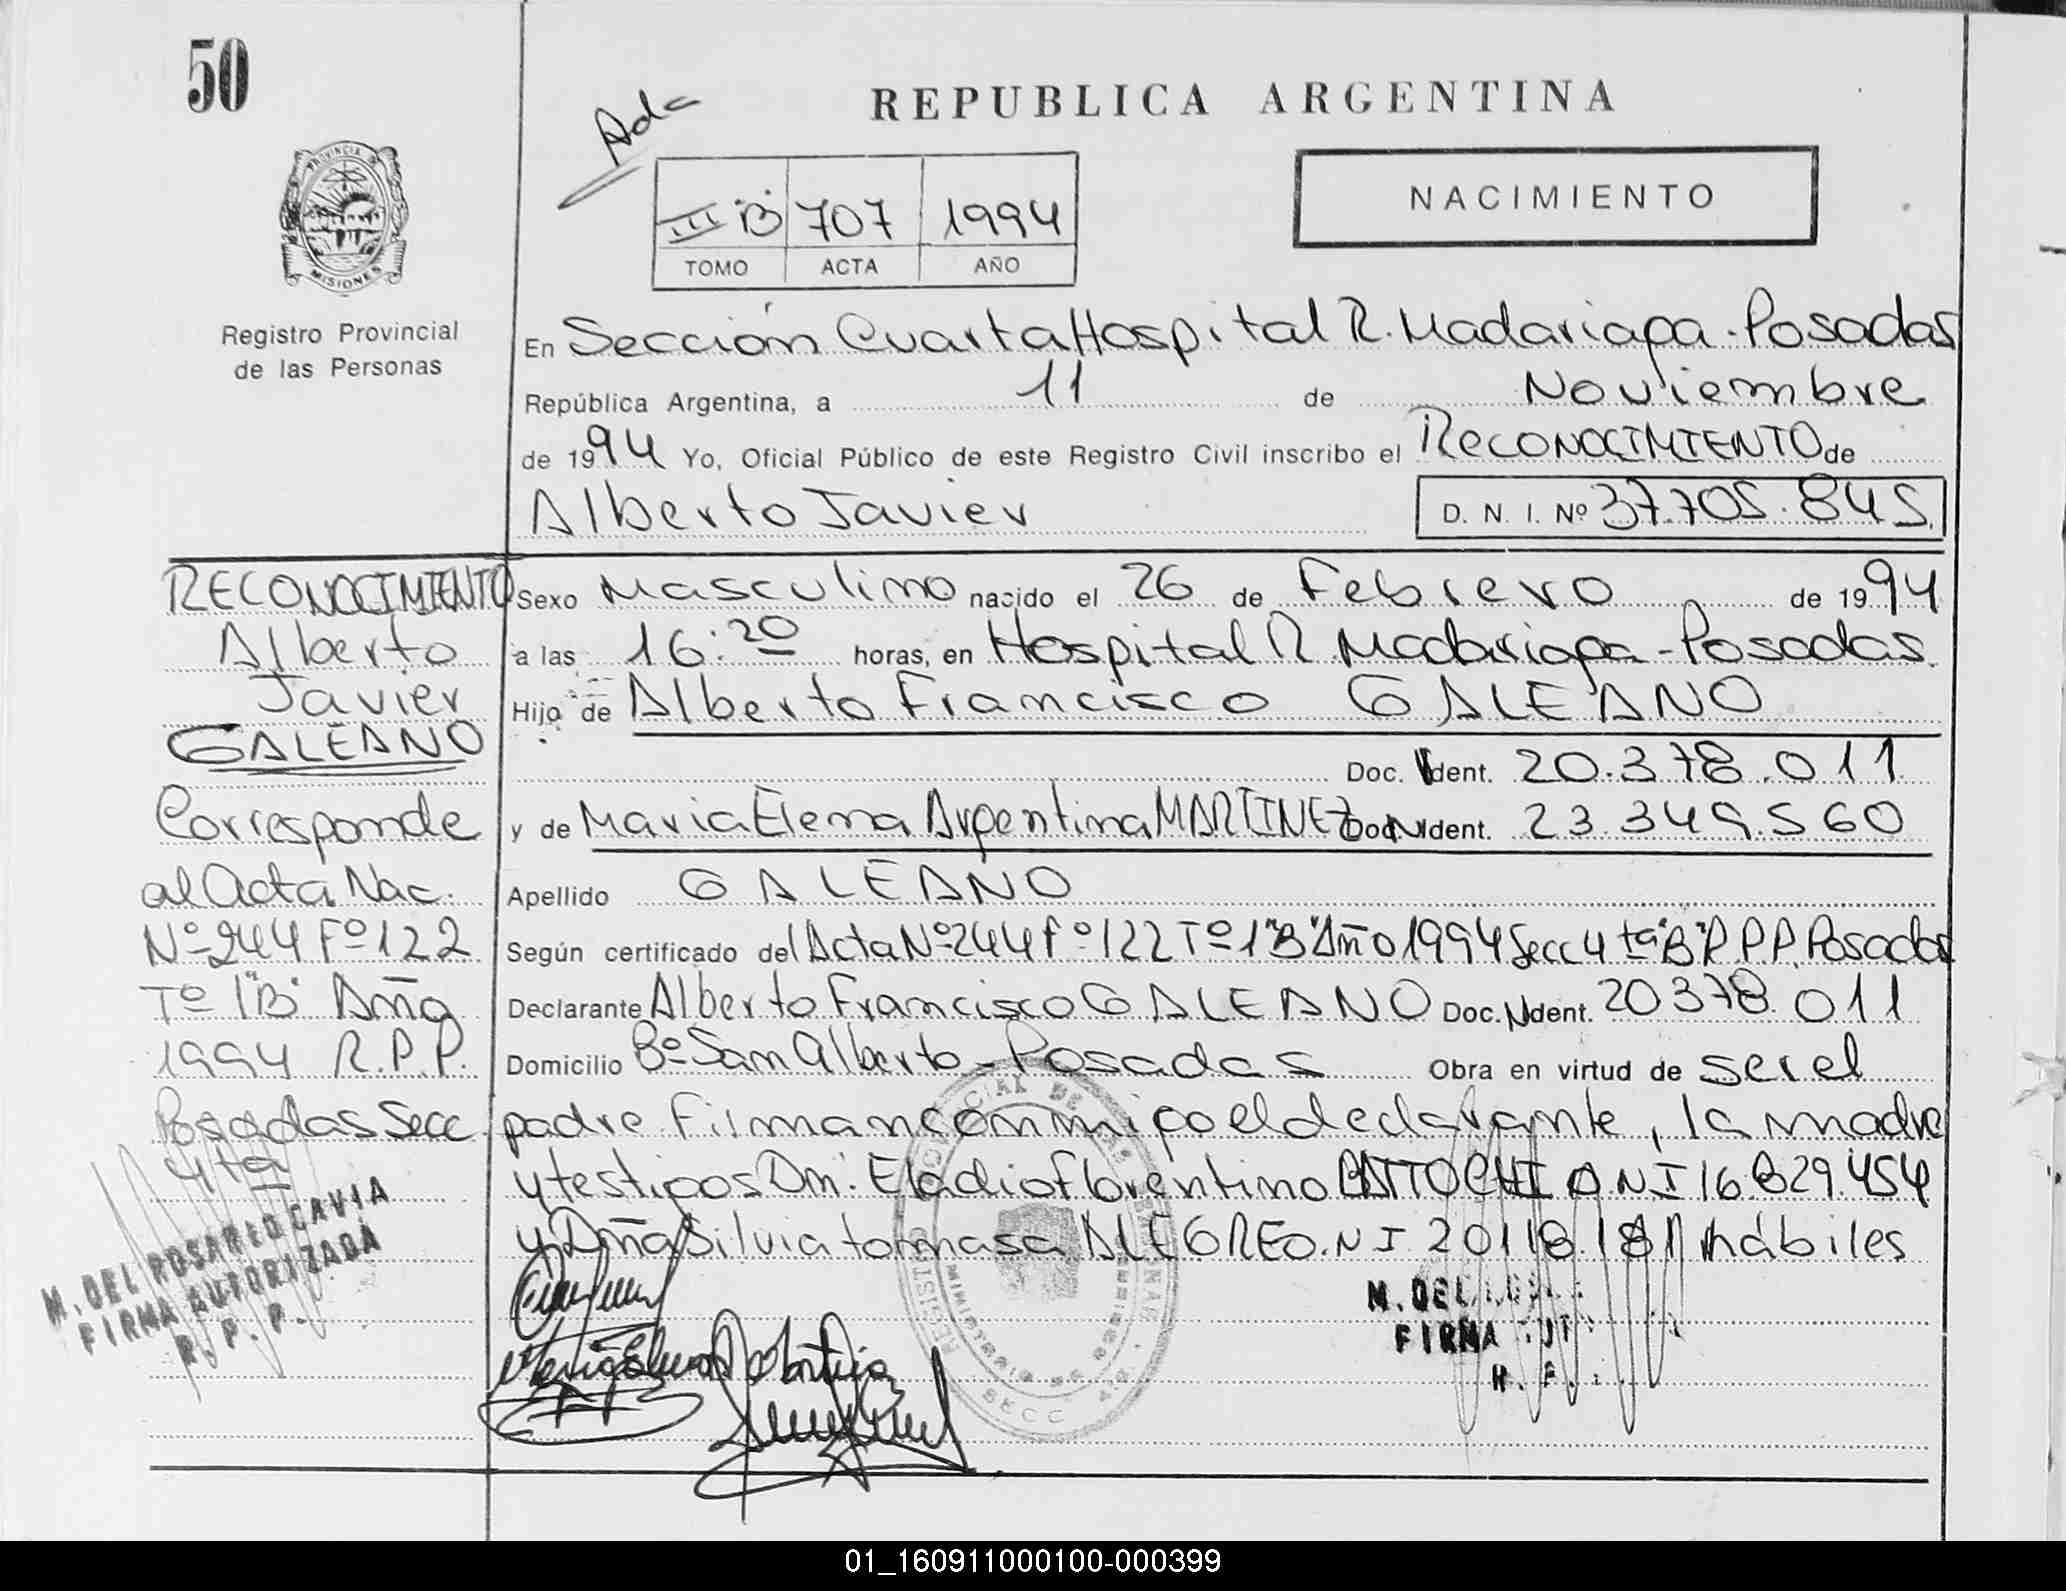 50
Ada
REPUBLICA ARGENTINA
PROVINCIA DE
MISIONES
III "B" 707 1994
TOMO ACTA AÑO
NACIMIENTO
Registro Provincial
de las Personas
En Sección Cuarta Hospital R. Madariaga - Posadas
República Argentina, a 11 de Noviembre
de 1994 Yo, Oficial Público de este Registro Civil inscribo el RECONOCIMIENTO de
Alberto Javier D. N. I. Nº 37.705.845
RECONOCIMIENTO
Alberto
Javier
GALEANO
Corresponde
al Acta Nac.
Nº 244 Fº 122
Tº 1 "B" Año
1994 R.P.P.
Posadas Secc
4ta
M. DEL ROSARIO CAVIA
FIRMA AUTORIZADA
R. P. P.
Sexo Masculino nacido el 26 de Febrero de 1994
a las 16:20 horas, en Hospital R. Madariaga - Posadas
Hijo de Alberto Francisco GALEANO
Doc. Ident. 20.378.011
y de Maria Elena Argentina MARTINEZ Doc. Ident. 23.349.560
Apellido GALEANO
Según certificado del Acta Nº 244 Fº 122 Tº 1 "B" Año 1994 Secc 4ta "B" R.P.P. Posadas
Declarante Alberto Francisco GALEANO Doc. Ident. 20378.011
Domicilio Bº San Alberto - Posadas Obra en virtud de ser el
padre Firman conmigo el declarante, la madre
y testigos Dn. Eladio Florentino D.N.I 16.829.454
y Dña Silvia tomasa ALEGRE D.N.I 20.118.181 hábiles
M. DEL
FIRMA
R. P.
SECC
01_160911000100-000399